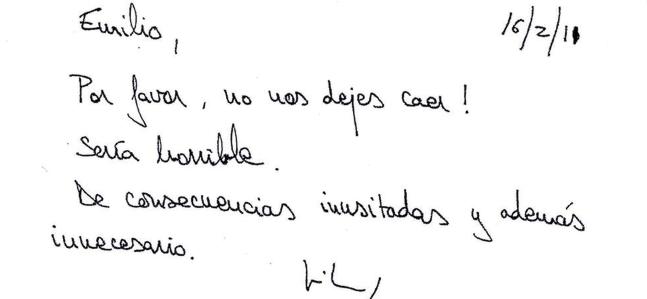 Emilio,
16/2/11
Por favor, no nos dejes caer!
Sería horrible.
De consecuencias inusitadas y además
innecesario.